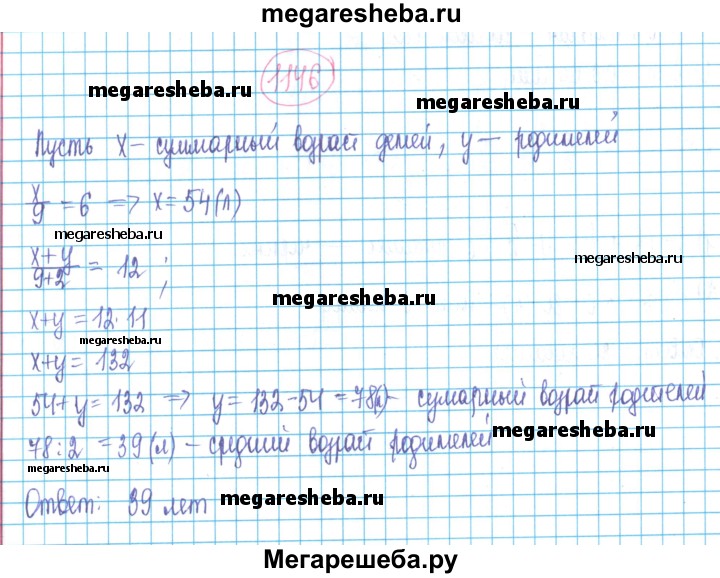 megaresheba.ru
1146
megaresheba.ru
megaresheba.ru
Пусть x – суммарный возраст детей, y – родителей
x/9 = 6 => x = 54 (л)
megaresheba.ru
(x+y)/(9+2) = 12 ;
megaresheba.ru
x+y = 12·11
megaresheba.ru
x+y = 132
54+y = 132 => y = 132-54 = 78(л) – сумарный возраст родителей
78:2 = 39 (л) – средний возраст родителей
megaresheba.ru
megaresheba.ru
Ответ: 39 лет
megaresheba.ru
Мегарешеба.ру